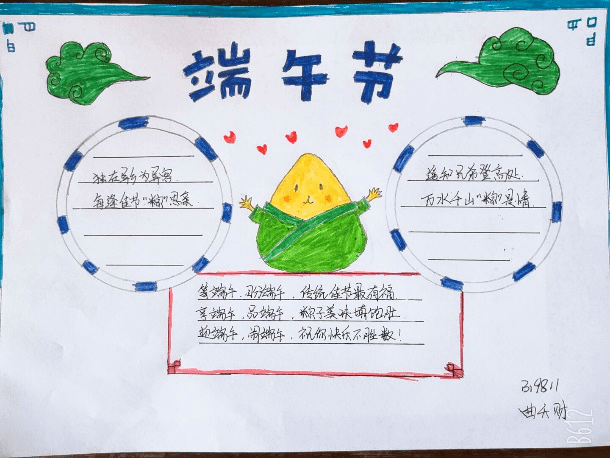 端午节
独在异乡为异客
每逢佳节"粽"思亲
遥知兄弟登高处.
万水千山"粽"是情.
等端午,盼端午,传统佳节最有福.
享端午,品端午,粽子美味填饱肚.
迎端午,闹端午,祝你快乐不胜数!
319811
B612